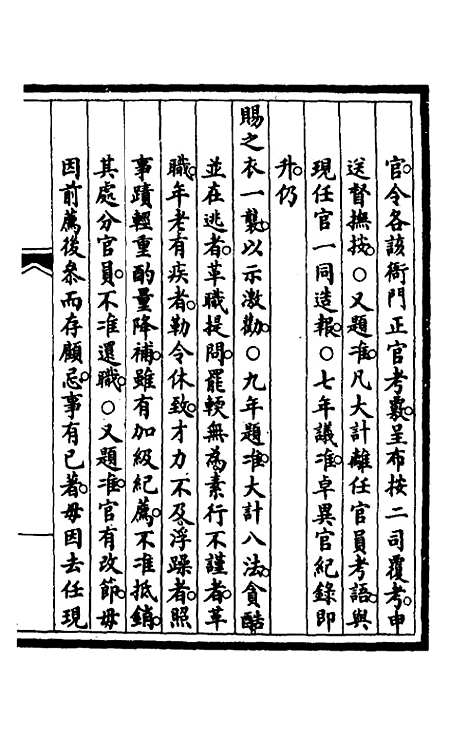 官。令各該衙門正官考覈。呈布按二司覆考。申
送督撫按。○又題准。凡大計離任官員考語。與
現任官一同造報。○七年議准。卓異官紀錄即
升。仍
賜之衣一襲。以示激勸。○九年題准。大計八法。貪酷
並在逃者。革職提問。罷輭無為素行不謹者。革
職。年老有疾者。勒令休致。才力不及浮躁者。照
事蹟輕重酌量降補。雖有加級紀薦。不准抵銷。
其處分官員。不准還職。○又題准。官有改節。毋
因前薦後叅而存顧忌。事有已著。毋因去任現